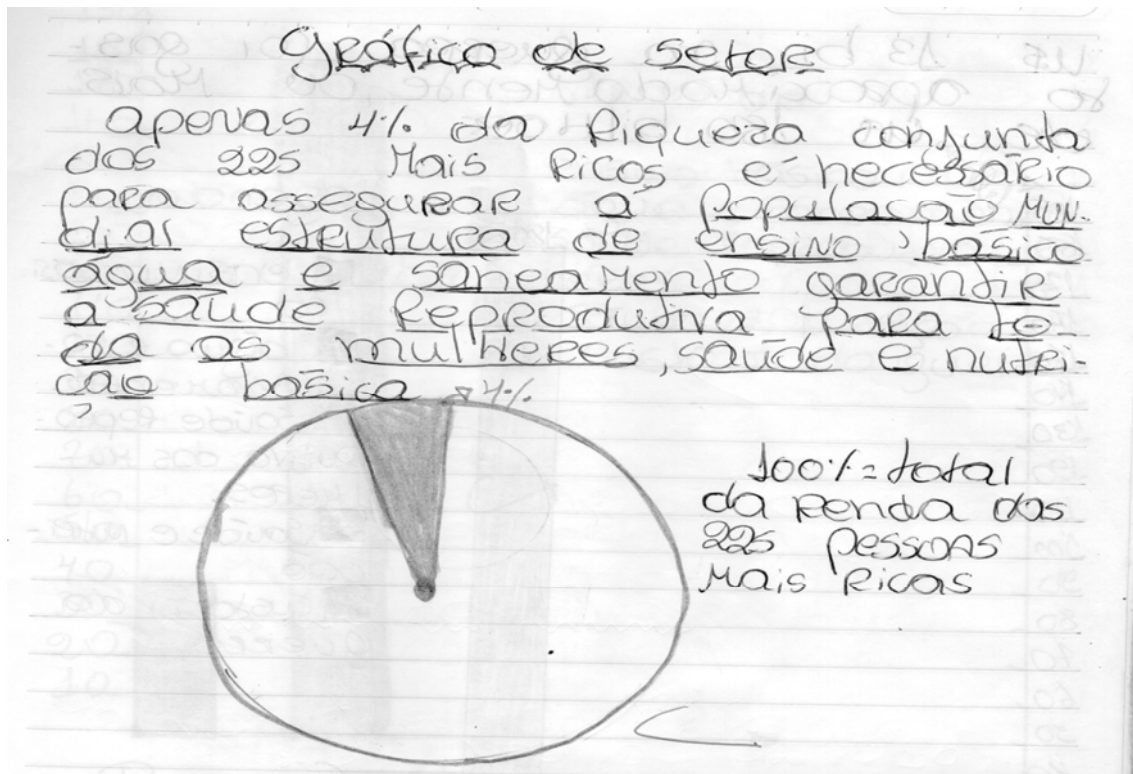 Gráfico de setor
apenas 4% da Riqueza conjunta
das 225 Mais Ricos é necessário
para assegurar a população MUN-
dial estrutura de ensino básico,
água e saneamento garantir
a saúde Reprodutiva para to
da as mulheres, saúde e nutri-
ção básica
4%
100% = total
da Renda das
225 pessoas
Mais Ricas